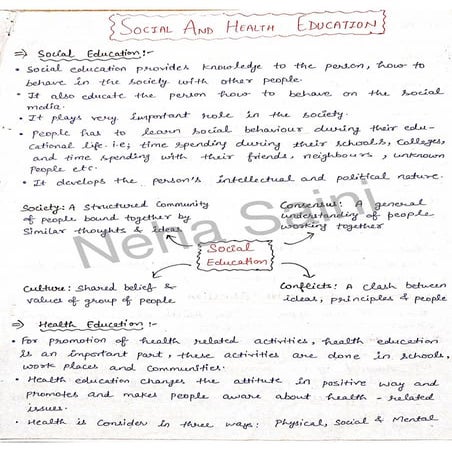 SOCIAL AND HEALTH EDUCATION
⇒ Social Education:-
• Social education provides knowledge to the person, how to
behave in the society with other people.
• It also educate the person how to behave on the social
media.
• It plays very important role in the society.
• People has to learn social behaviour during their edu-
cational life. i.e; time spending during their schools, Colleges,
and time spending with their friends, neighbours, unknown
People etc.
• It develops the person's intellectual and political nature.
Society: A Structured Community
of people bound together by
Similar thoughts & ideas
Consensus: A general
understanding of people
working together
Social
Education
Culture: Shared belief &
values of group of people
Conflicts: A Clash between
ideas, principles & people
⇒ Health Education:-
• For promotion of health related activities, health education
is an important part, these activities are done in schools,
work places and Communities.
• Health education changes the attitude in positive way and
promotes and makes people aware about health-related
issues.
• Health is Consider in three ways: Physical, Social & Mental
Neha Saini